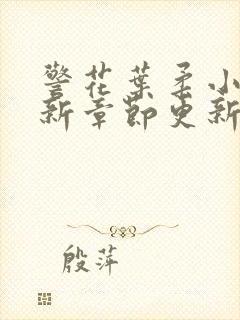 警花葉柔小
新章節更新
殷萍